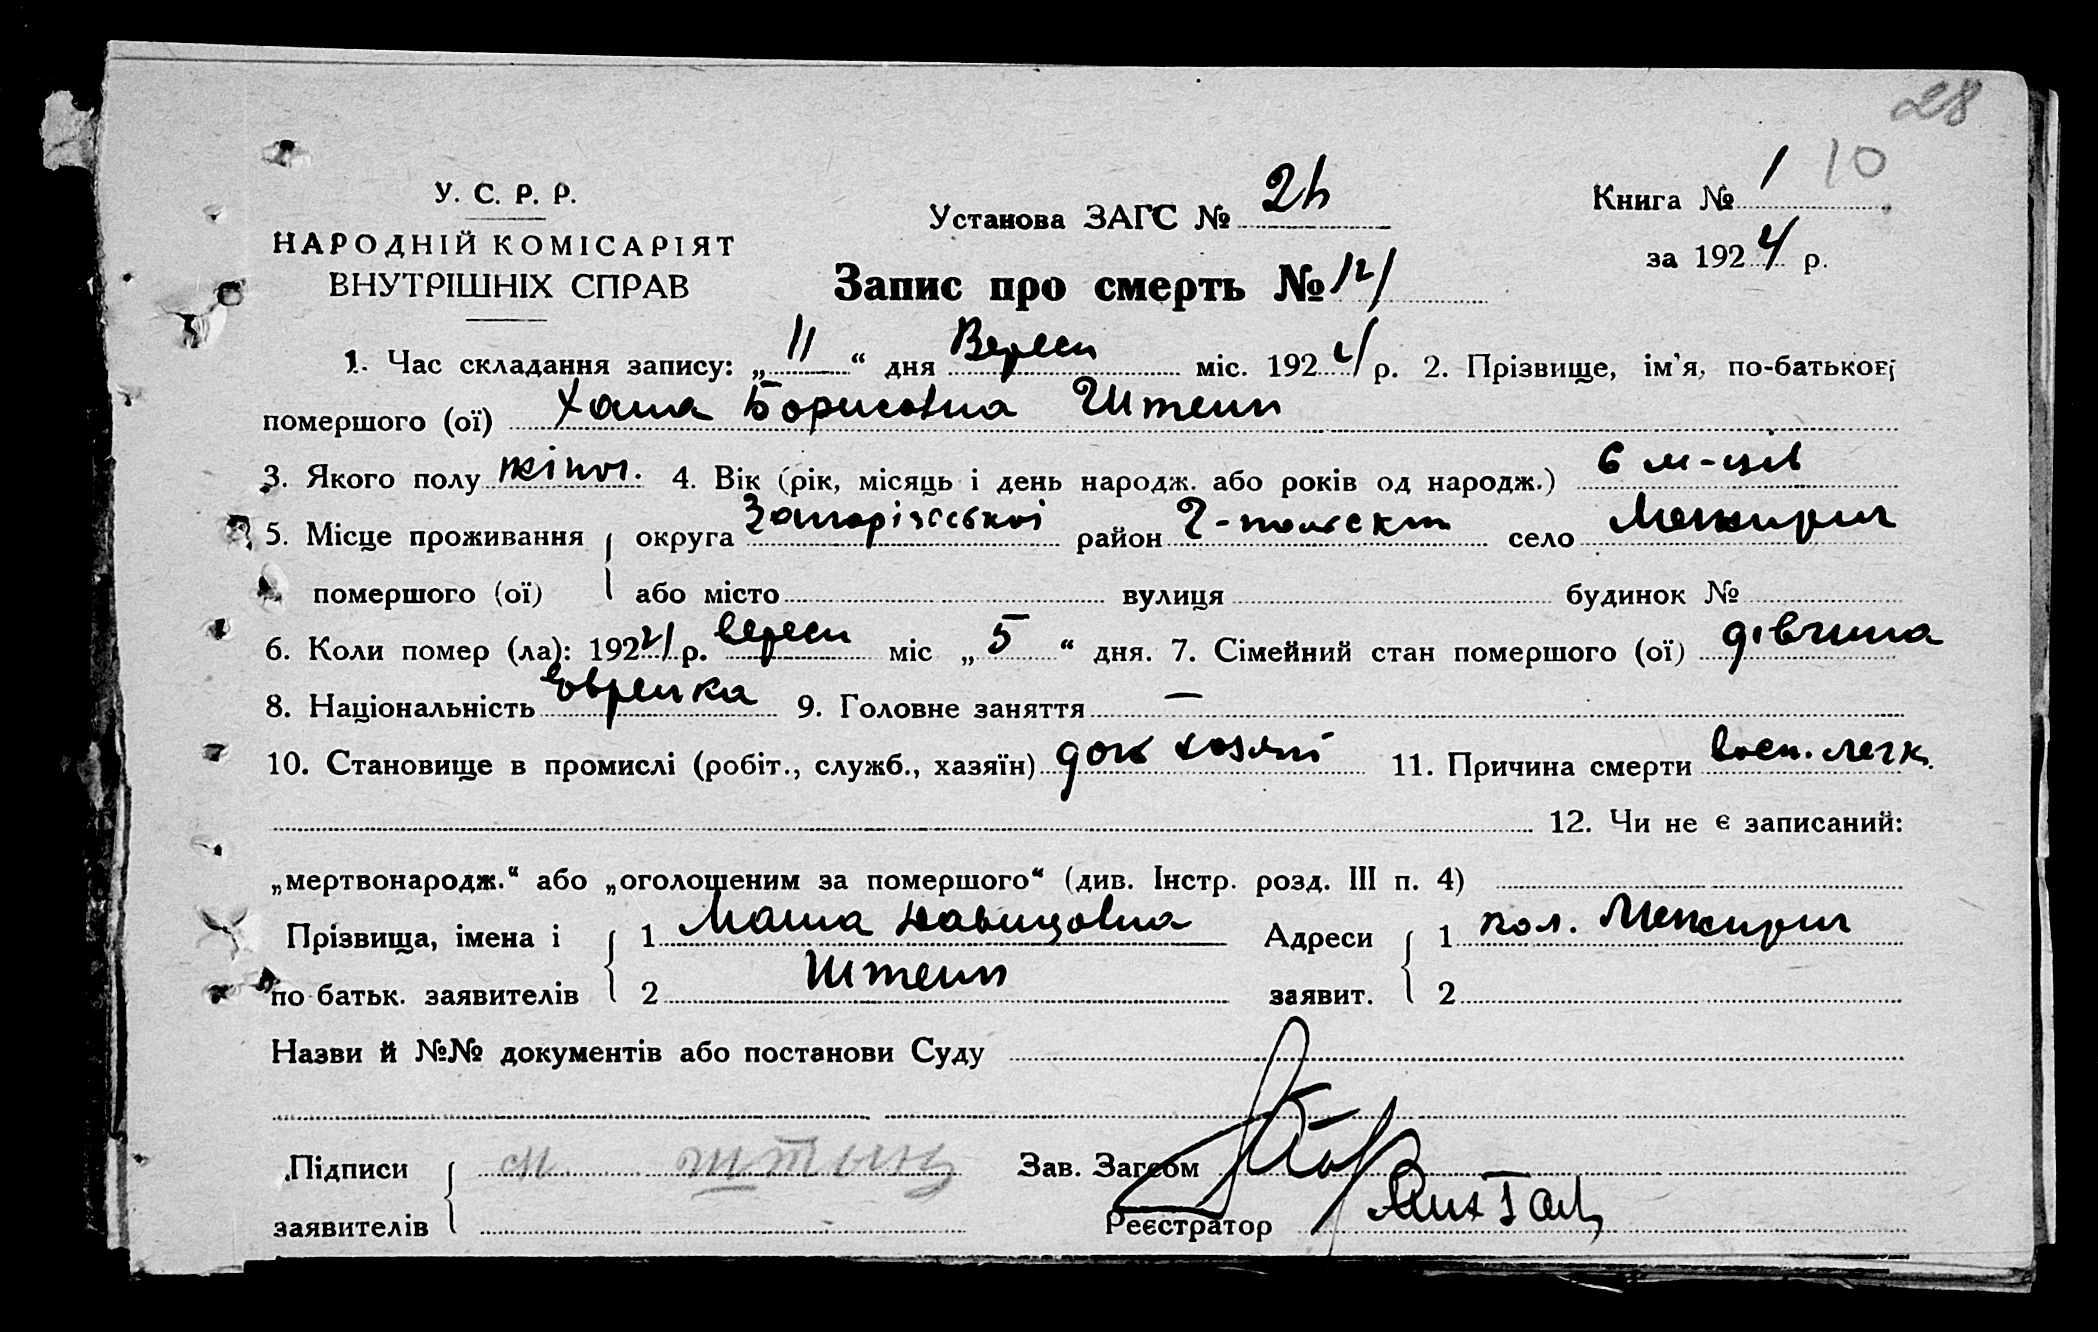 28
У. С. Р. Р.
НАРОДНІЙ КОМІСАРІЯТ
ВНУТРІШНІХ СПРАВ
Установа ЗАГС №
Книга № 1 10
за 1924 р.
Запис про смерть № 121
1. Час складання запису: „ 11 “ дня Вересн міс. 1924 р. 2. Прізвище, ім’я, по-батькові
помершого (ої) Хана Борисовна Штеин
3. Якого полу жіноч. 4. Вік (рік, місяць і день народж. або років од народж.) 6 м-ців
5. Місце проживання округа Запорізської район село Межирич
помершого (ої) або місто вулиця будинок №
6. Коли помер (ла): 1924 р. вересн міс „ 5 “ дня. 7. Сімейний стан помершого (ої) дівчина
8. Національність Еврейка 9. Головне заняття —
10. Становище в промислі (робіт., служб., хазяїн) 11. Причина смерти восп. легк.
12. Чи не є записаний:
„мертвонародж.“ або „оголошеним за помершого“ (див. Інстр. розд. III п. 4)
Прізвища, імена і 1 Маша Давидовна Адреси 1 кол. Межирич
по батьк. заявителів 2 Штеин заявит. 2
Назви й №№ документів або постанови Суду
Підписи м Зав. Загсом
заявителів Реєстратор